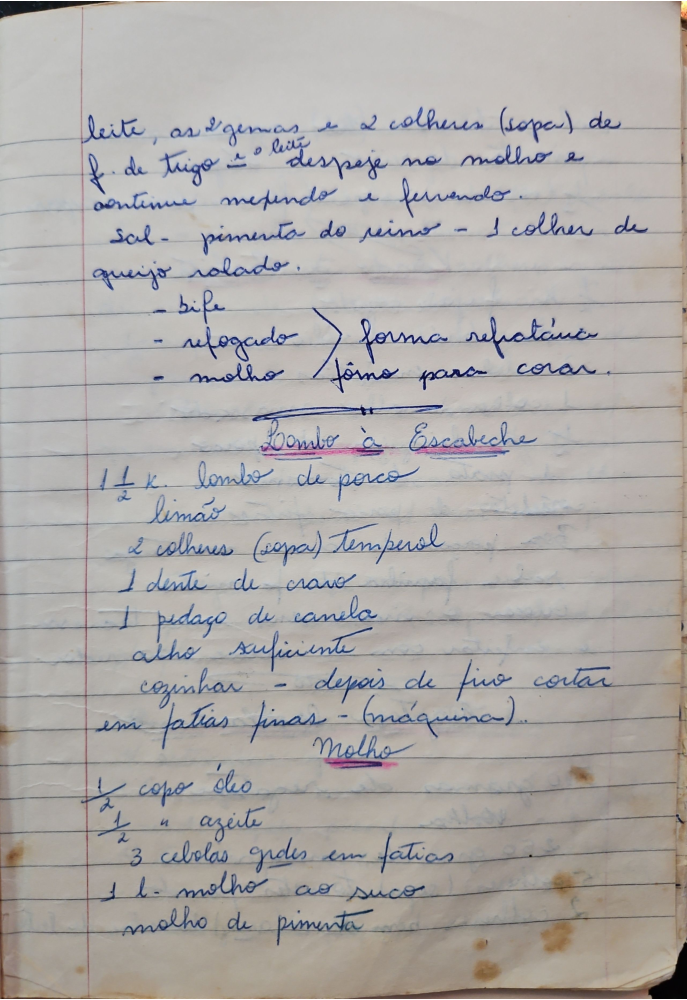 leite, as 2 gemas e 2 colheres (sopa) de
f. de trigo e o leite despeje no molho e
continue mexendo e fervendo.
Sal - pimenta do reino - 1 colher de
queijo ralado.
- bife
- refogado > forma refratária
- molho fôrno para corar.
Lombo à Escabeche
1 1/2 K. lombo de porco
limão
2 colheres (sopa) Temperol
1 dente de cravo
1 pedaço de canela
alho suficiente
cozinhar - depois de frio cortar
em fatias finas - (máquina).
Molho
1/2 copo óleo
1/2 " azeite
3 cebolas gdes em fatias
1 l. molho ao suco
molho de pimenta